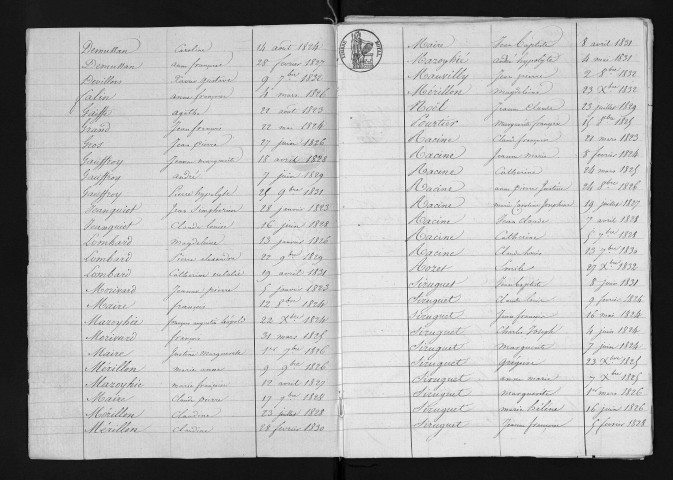 Demussan Caroline 14 août 1824
Demussan anne françoise 28 février 1827
Devillers Xavier gustave 9 7bre 1830
anne françoise 4 mars 1826
Gaiffe agathe 22 août 1823
Girard Jean françois 22 mai 1824
Gros Jean pierre 27 juin 1826
Gauffroy Jeanne marguerite 18 avril 1828
Gauffroy andré 7 juin 1829
Gauffroy Pierre hypolyte 25 9bre 1831
Jeanguiot Jean Simphorien 28 janvier 1823
Jeanguet Claude louis 16 juin 1828
Lombard Magdeleine 13 janvier 1826
Lombard Pierre alexandre 22 9bre 1829
Lombard Catherine eulalie 19 avril 1831
Morivard Jeanne pierre 5 janvier 1823
Maire françois 12 8bre 1824
Mazoyhié françois auguste léopold 22 Xbre 1824
Morivard françois 31 mars 1825
Maire Justine Marguerite 1er 7bre 1826
Mérillon marie anne 9 9bre 1826
Mazoyhié marie françoise 12 avril 1827
Maire Claude pierre 17 9bre 1828
Mérillon Claudine 23 juillet 1828
Mérillon Claudine 28 février 1830
Maire Jean Baptiste 8 avril 1831
Mazoyhié aimée hypolyte 4 mai 1831
Mauvilly Jean pierre 2 8bre 1832
Mérillon Magdeleine 23 Xbre 1832
Noël Jeanne Claude 23 juillet 1829
Pourtier Marguerite françoise 15 8bre 1825
Racine Claude françois 21 mars 1823
Racine Jeanne Marie 8 février 1824
Racine Catherine 24 mars 1825
Racine anne pierre Justine 24 8bre 1826
Racine marie Justine Josephine 19 juillet 1827
Racine Jean Claude 7 avril 1828
Racine Catherine 5 7bre 1828
Racine Claude louis 13 7bre 1830
Rozet Emile 27 Xbre 1832
Siruguet Jean baptiste 8 juin 1831
Siruguet Claude louis 9 février 1824
Siruguet Jean françois 16 mai 1824
Siruguet Claude Joseph 4 juin 1824
Siruguet Marguerite 7 juin 1824
Siruguet grégoire 23 Xbre 1825
Siruguet anne marie 7 Xbre 1825
Siruguet Marguerite 1er mars 1826
Siruguet marie hélène 16 juin 1826
Siruguet Jeanne françoise 5 février 1828